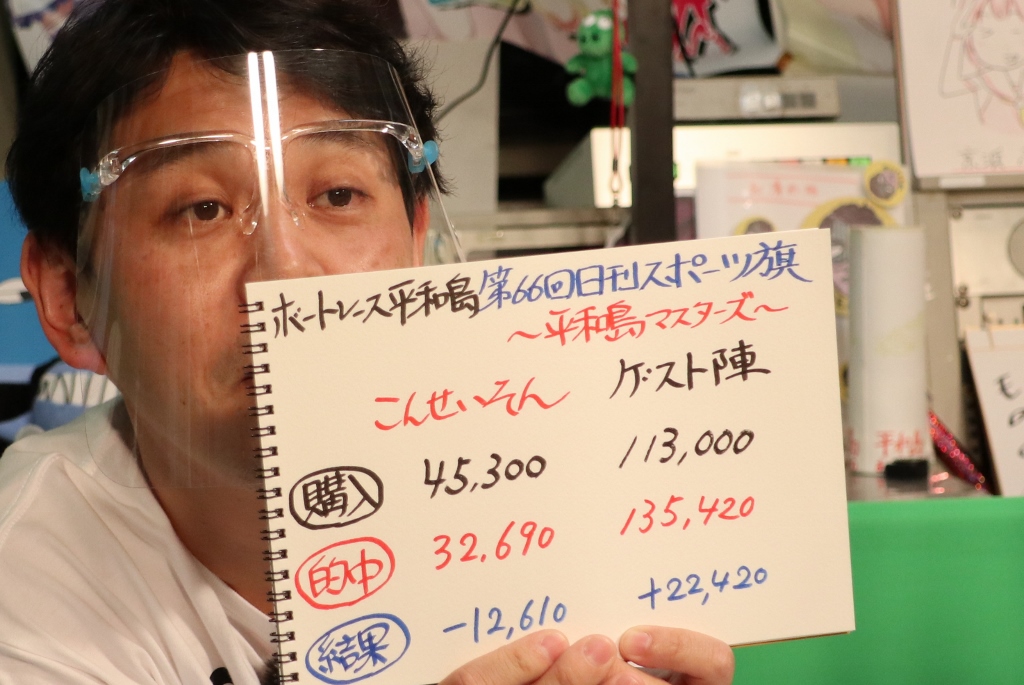 ボートレース平和島第66回日刊スポーツ旗
～平和島マスターズ～
こんせいそん ゲスト陣
購入 45,300 113,000
的中 32,690 135,420
結果 -12,610 +22,420